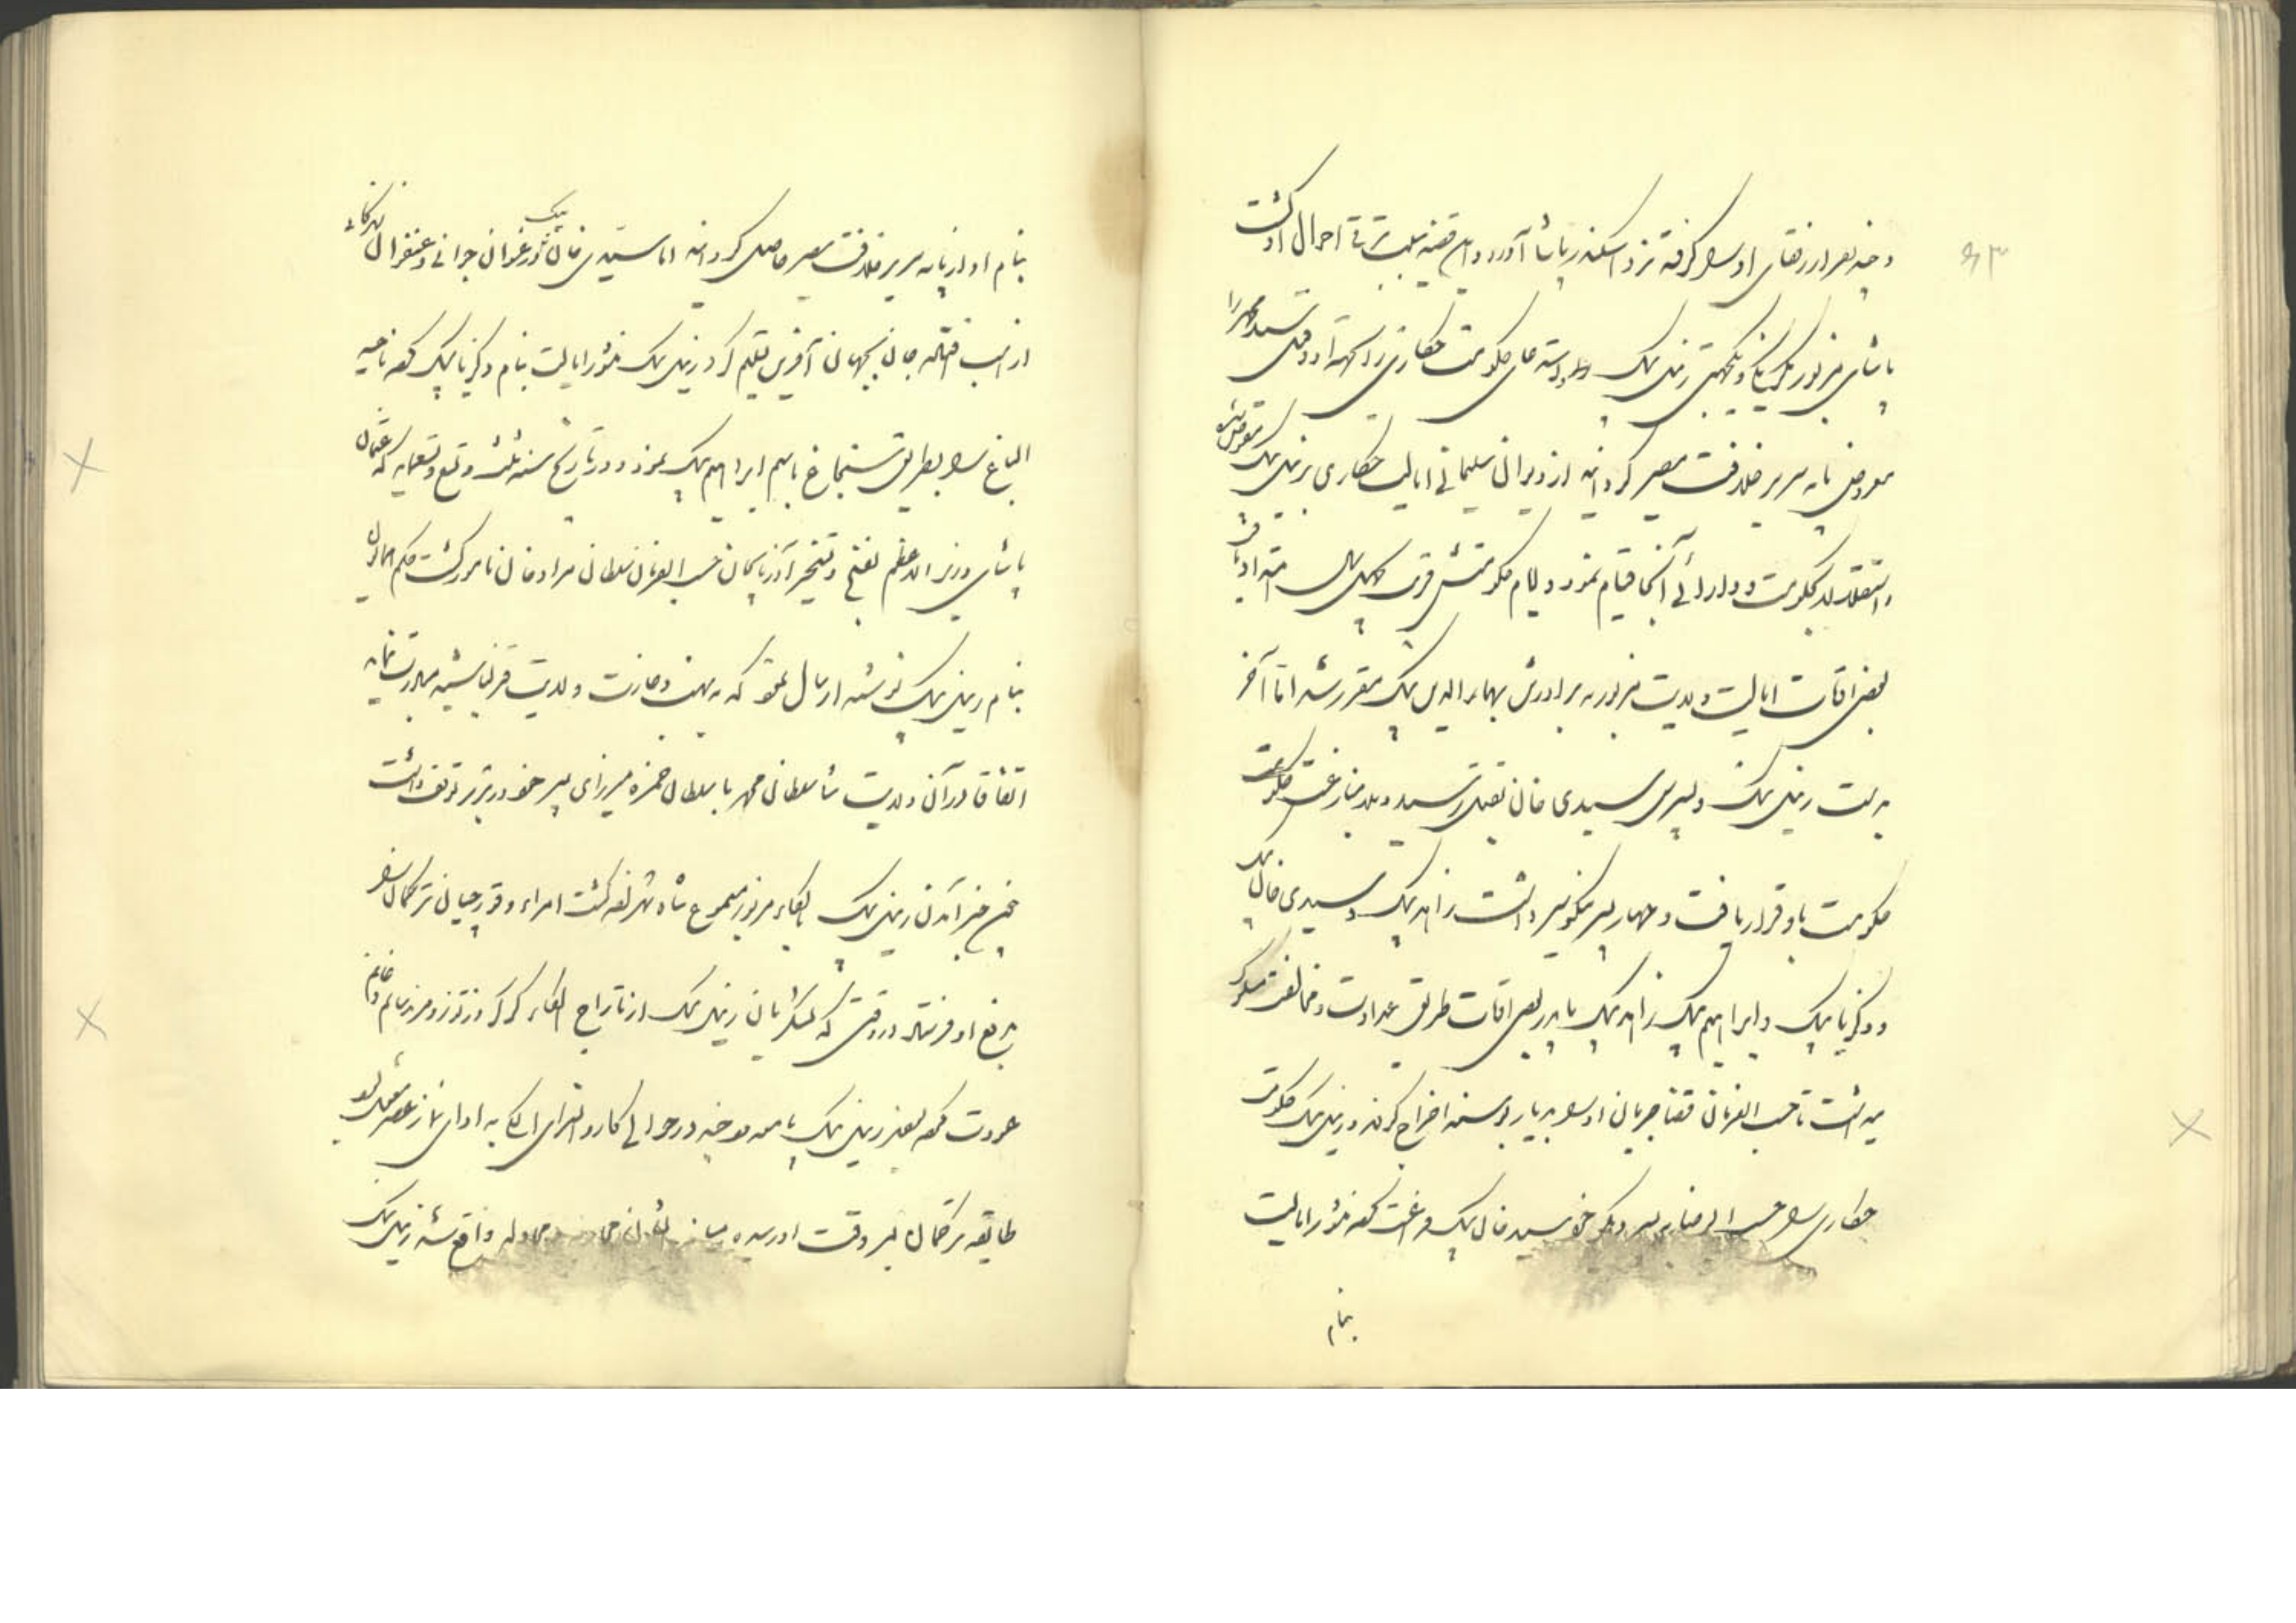 ۶۳
و چند نفر از رفقای او را گرفته نزد اسکندر پاشا آورد و این قضیه سبب ترقی احوال او گشت
پاشای مزبور یکرنگی و یکجهتی زینل بیک و استدعای حکومت حکاری را جهة او و قتل سید محمد را
معروض پایه سریر خلافت مصیر گردانید از دیوان سلیمانی ایالت حکاری بزینل بیک مفوض شده
باستقلال بحکومت و دارائی آنجا قیام نمود و ایام حکومتش قرب چهل سال امتداد یافت
بعضی اوقات ایالت ولایت مزبور به برادرش بهاء الدین بیک مقرر شد اما آخر
بدست زینل بیک و پسرش سیدی خان بقتل رسید و بلا منازعت حکومت
حکومت باو قرار یافت و چهار پسر نیکو سیر داشت زاهد بیک و سیدی خان بیک
و زکریا بیک و ابراهیم بیک زاهد بیک با پدر بعضی اوقات طریق عداوت و مخالفت مسلوک
میداشت تا حسب الفرمان قضا جریان او را بدیار بوسنه اخراج کردند و زینل بیک حکومت
حکاری را حسب الرضا به پسر دیگر خود سیدی خان بیک فراغت کرده منشور ایالت
بنام
بنام او از پایه سریر خلافت مصیر حاصل گردانید اما سیدی خان بیک در عنفوان جوانی و عنفوان زندگانی
از اسب افتاده جان بجهان آفرین تسلیم کرد زینل بیک منشور ایالت بنام زکریا بیک کرده ناحیه
الباغ را بطریق سنجاغ باسم ابراهیم بیک نمود و در تاریخ سنه ثلث و تسع و تسعمایه که عثمان
پاشای وزیر اعظم بفتح و تسخیر آذربایجان حسب الفرمان سلطان مراد خان نامور گشت حکم همایون
بنام زینل بیک نوشته ارسال نمود که به نهب و غارت ولایت قزلباشیه مبادرت نماید
اتفاقا در آن ولایت شاه سلطان محمد با سلطان حمزه میرزای پسر خود در تبریز توقف داشت
چون خبر آمدن زینل بیک بالکاء مزبور مسموع شاه شد لفه گشت امراء و قورچیان ترکمان را
بدفع او فرستاد در وقتی که لشکریان زینل بیک از تاراج الکاء کرکر و زنوز و مرند سالم و غانم
عودت کرده بودند زینل بیک با معدودی چند در حوالی کاروانسرای الکی به ادای نماز عصر مشغول بود
طایفه ترکمان بسر وقت او رسیده میانه ایشان محاربه و مجادله واقع شد زینل بیک